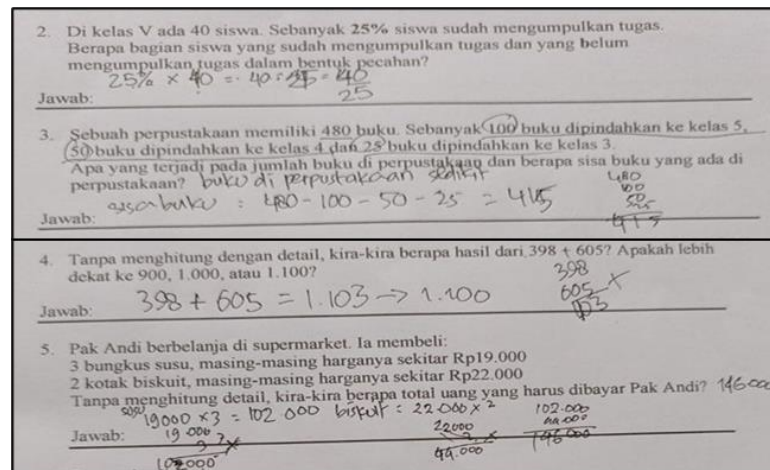 2. Di kelas V ada 40 siswa. Sebanyak 25% siswa sudah mengumpulkan tugas.
Berapa bagian siswa yang sudah mengumpulkan tugas dan yang belum
mengumpulkan tugas dalam bentuk pecahan?
25% × 40 = 40 : 25 = 40
25
Jawab:
3. Sebuah perpustakaan memiliki 480 buku. Sebanyak 100 buku dipindahkan ke kelas 5,
50 buku dipindahkan ke kelas 4 dan 25 buku dipindahkan ke kelas 3.
Apa yang terjadi pada jumlah buku di perpustakaan dan berapa sisa buku yang ada di
perpustakaan? buku di perpustakaan sedikit
480
100
50
sisa buku : 480 - 100 - 50 - 25 = 415
Jawab:
415
4. Tanpa menghitung dengan detail, kira-kira berapa hasil dari 398 + 605? Apakah lebih
dekat ke 900, 1.000, atau 1.100?
398
605
398 + 605 = 1.103 → 1.100
Jawab:
5. Pak Andi berbelanja di supermarket. Ia membeli:
3 bungkus susu, masing-masing harganya sekitar Rp19.000
2 kotak biskuit, masing-masing harganya sekitar Rp22.000
Tanpa menghitung detail, kira-kira berapa total uang yang harus dibayar Pak Andi? 146000
susu 19000 × 3 = 102.000 biskuit : 22.000 × 2
102.000
44.000
146000
Jawab:
19.000
3 ×
102000
22000
2 ×
44.000